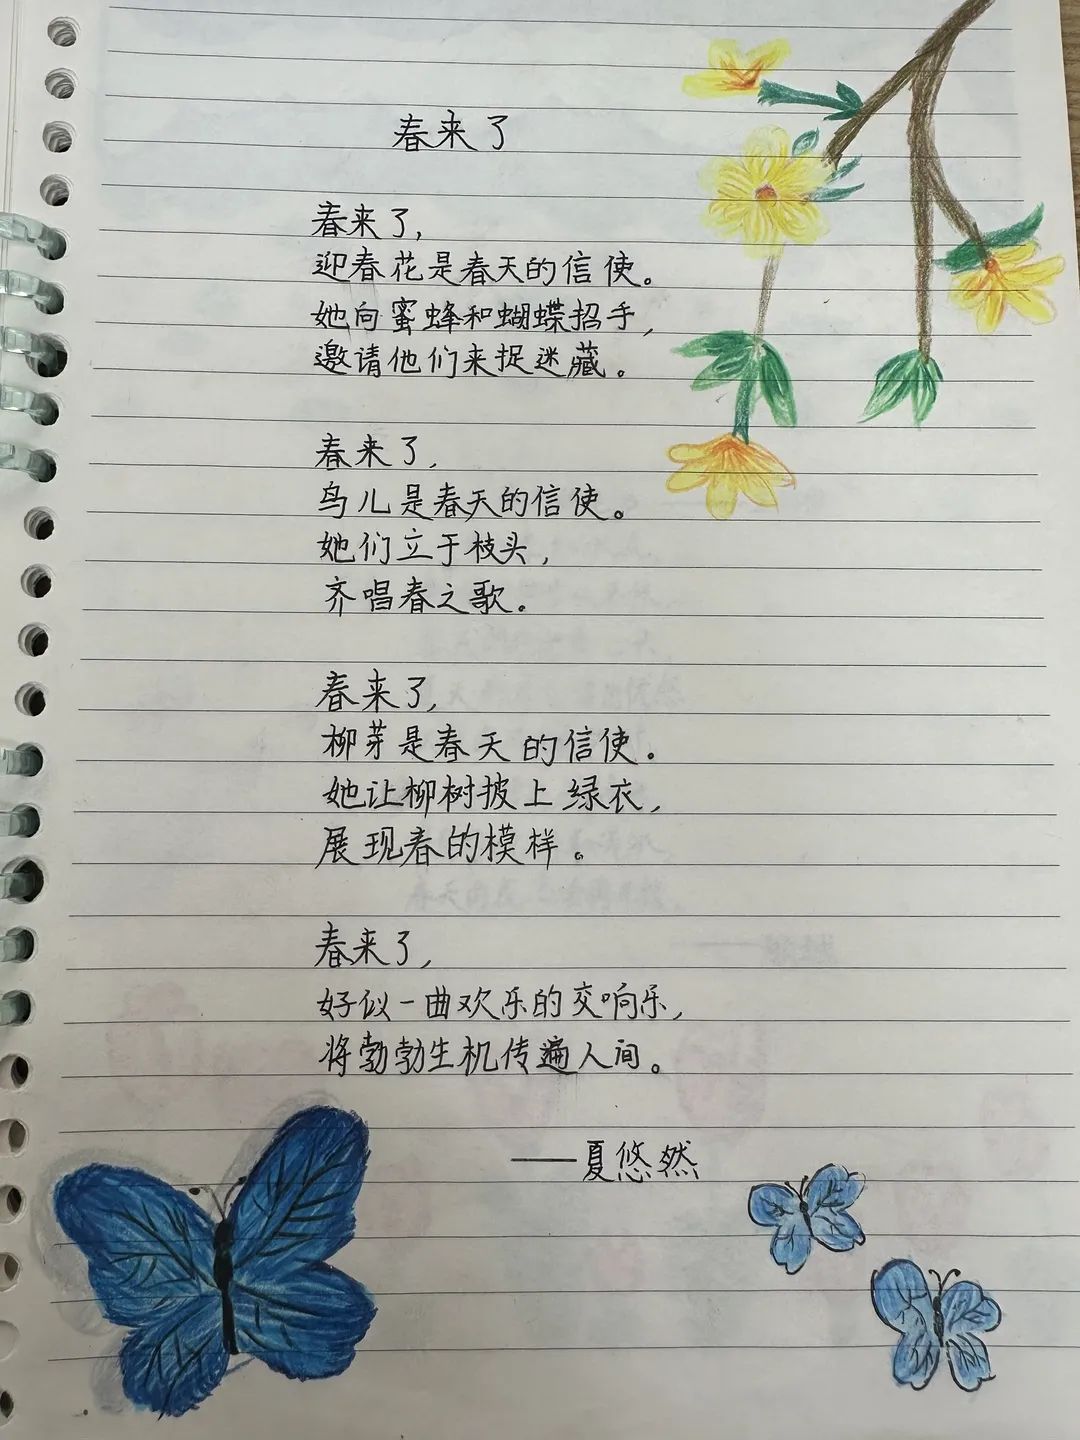 春来了
春来了，
迎春花是春天的信使。
她向蜜蜂和蝴蝶招手，
邀请他们来捉迷藏。
春来了，
鸟儿是春天的信使。
她们立于枝头，
齐唱春之歌。
春来了，
柳芽是春天的信使。
她让柳树披上绿衣，
展现春的模样。
春来了，
好似一曲欢乐的交响乐，
将勃勃生机传遍人间。
——夏悠然